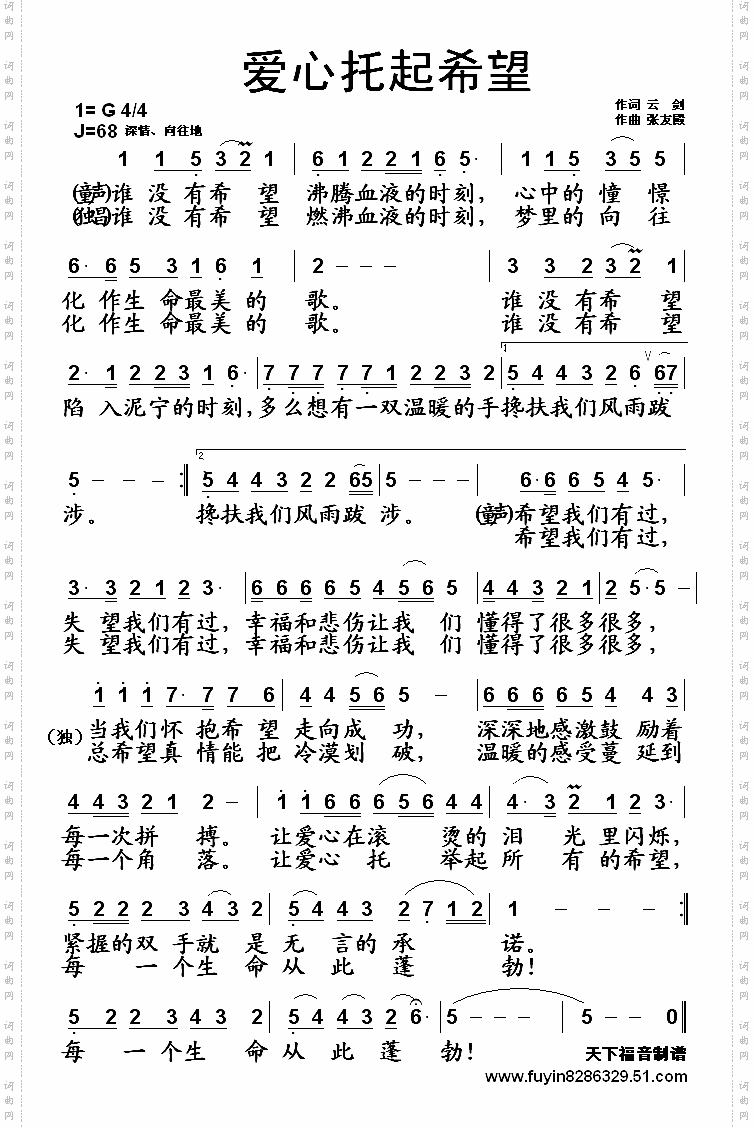 爱心托起希望
1= G 4/4
作词 云 剑
J=68 深情、向往地
作曲 张友殿
1 1 5 3 2 1 | 6 1 2 2 1 6 5· | 1 1 5 3 5 5
(童声)谁 没 有 希 望 沸腾血液的时刻，心中的 憧 憬
(独唱)谁 没 有 希 望 燃沸血液的时刻，梦里的 向 往
6· 6 5 3 1 6 1 | 2 – – – | 3 3 2 3 2 1
化 作生 命最美 的 歌。 谁 没 有希 望
化 作生 命最美 的 歌。 谁 没 有希 望
2· 1 2 2 3 1 6· | 7 7 7 7 7 1 2 2 3 2 | 1. 5 4 4 3 2 6 V 67
陷 入泥宁的时刻，多么想有一双温暖的手搀扶我们风雨跋
5 – – – :| 2. 5 4 4 3 2 2 65 | 5 – – – | 6·6 6 5 4 5·
涉。 搀扶我们风雨跋 涉。 (童声)希望我们有过，
希望我们有过，
3· 3 2 1 2 3· | 6 6 6 6 5 4 5 6 5 | 4 4 3 2 1 | 2 5·5 –
失 望我们有过，幸福和悲伤让我 们 懂得了很多很多，
失 望我们有过，幸福和悲伤让我 们 懂得了很多很多，
1 1 1 7· 7 7 6 | 4 4 5 6 5 – | 6 6 6 6 5 4 4 3
(独) 当我们怀 抱希 望 走向成 功， 深深地感激鼓 励着
总希望真 情能 把 冷漠划 破， 温暖的感受蔓 延到
4 4 3 2 1 2 – | 1 1 6 6 6 5 6 4 4 | 4· 3 2 1 2 3
每一次拼 搏。 让爱心在滚 烫的 泪 光 里闪烁，
每一个角 落。 让爱心 托 举起 所 有 的希望，
5 2 2 2 3 4 3 2 | 5 4 4 3 2 7 1 2 | 1 – – – :|
紧握的双 手就 是 无 言的 承 诺。
每 一 个生 命 从 此 蓬 勃！
5 2 2 3 4 3 2 | 5 4 4 3 2 6· | 5 – – – | 5 – – 0 ‖
每 一 个生 命 从 此 蓬 勃！
天下福音制谱
www.fuyin8286329.51.com
词曲网